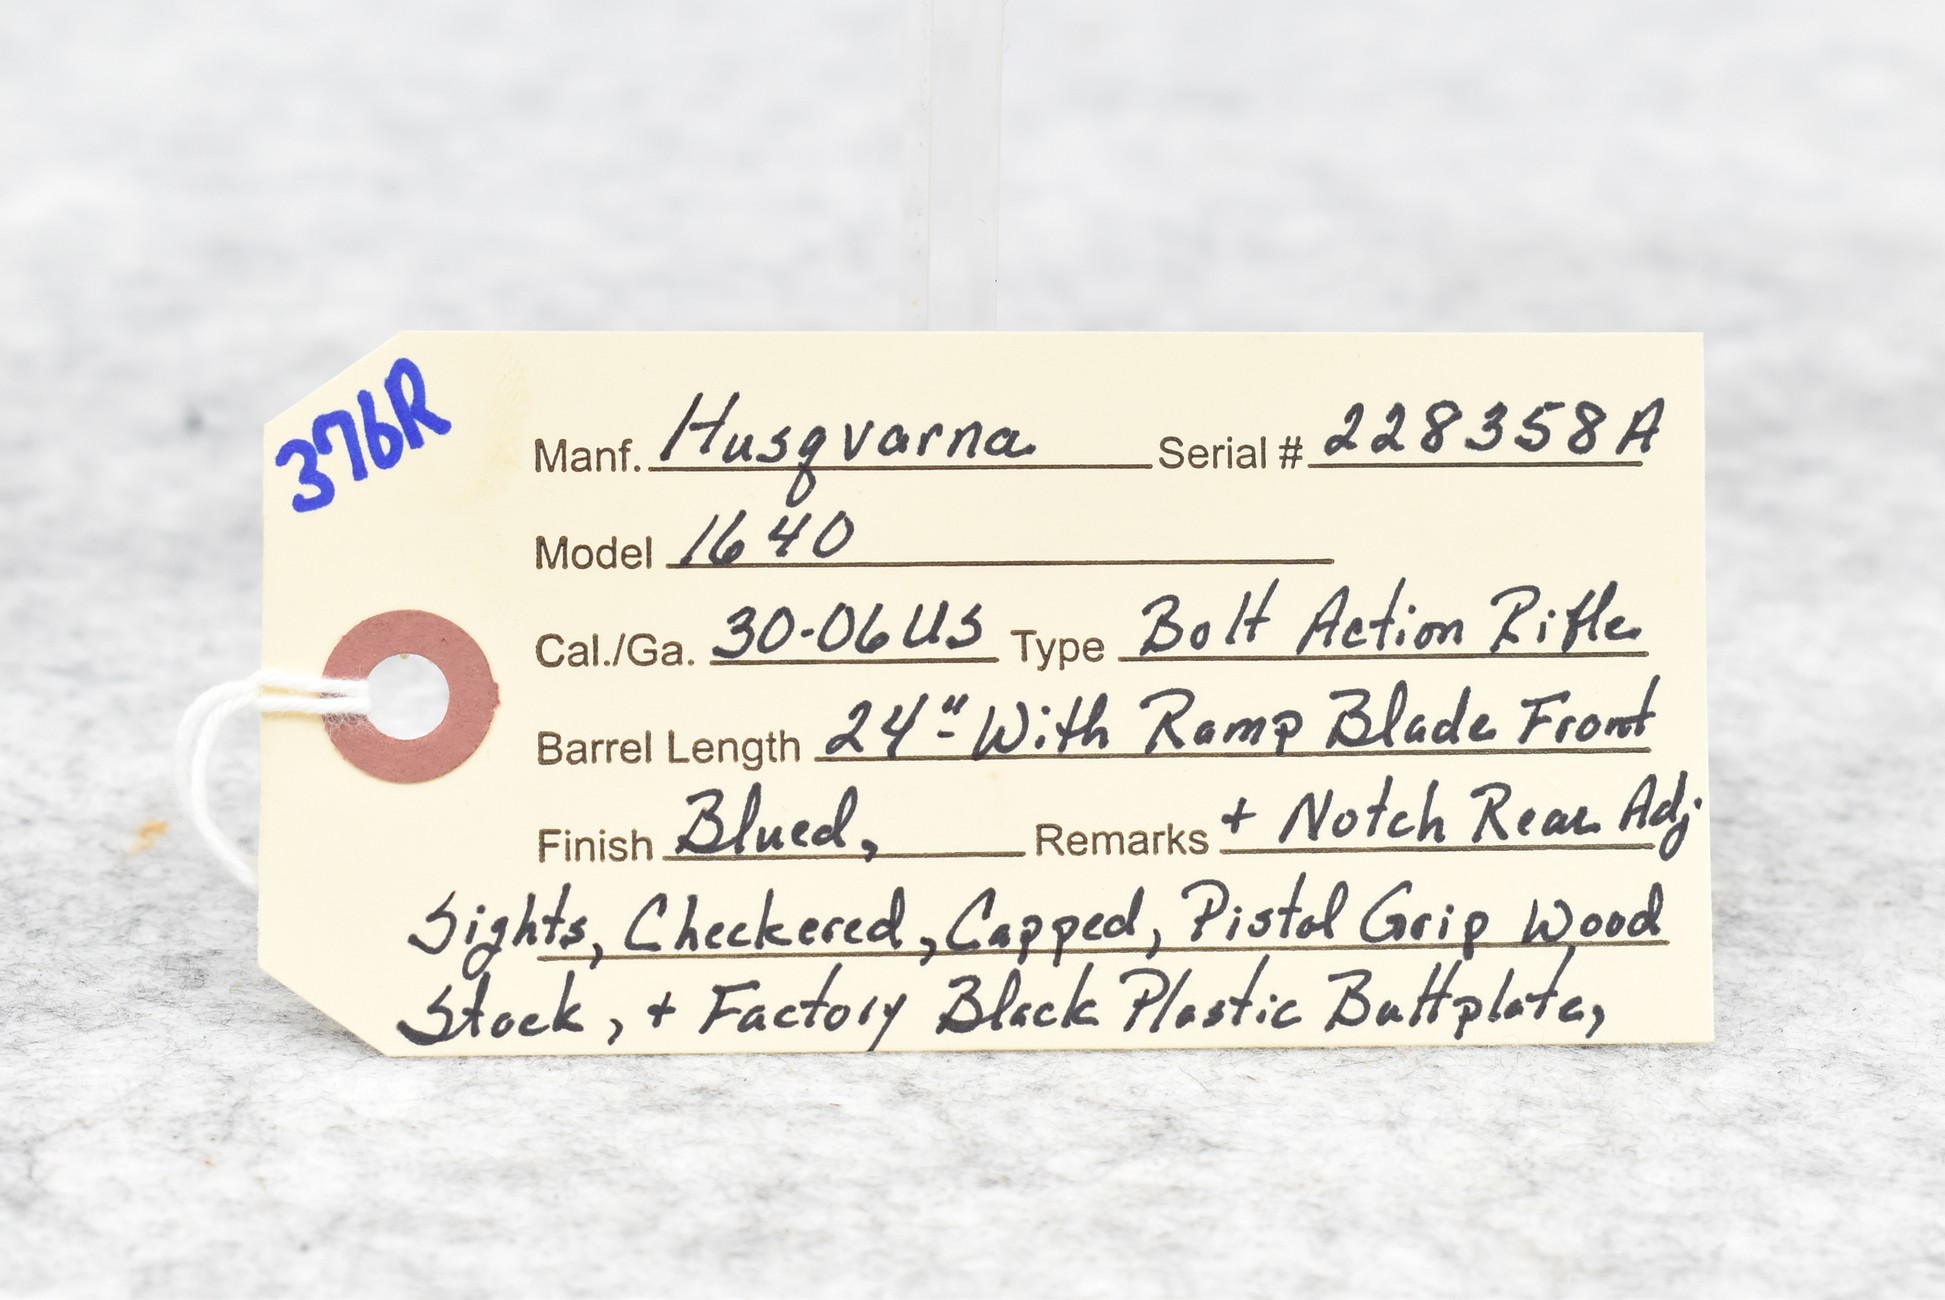 376R
Manf. Husqvarna Serial # 228358A
Model 1640
Cal./Ga. 30-06 US Type Bolt Action Rifle
Barrel Length 24"- With Ramp Blade Front
Finish Blued, Remarks + Notch Rear Adj.
Sights, Checkered, Capped, Pistol Grip Wood
Stock, + Factory Black Plastic Buttplate,